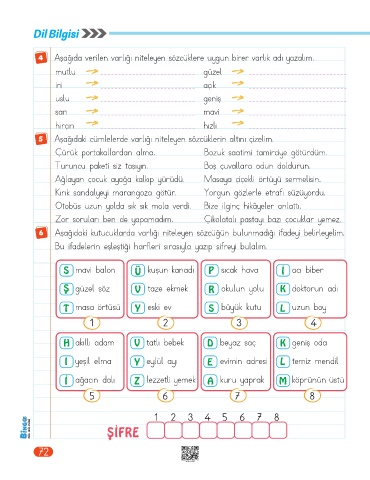 Dil Bilgisi
4 Aşağıda verilen varlığı niteleyen sözcüklere uygun birer varlık adı yazalım.
mutlu güzel
iri açık
uslu geniş
sarı mavi
hırçın hızlı
5 Aşağıdaki cümlelerde varlığı niteleyen sözcüklerin altını çizelim.
Çürük portakallardan alma. Bozuk saatimi tamirciye götürdüm.
Turuncu paketi siz taşıyın. Boş çuvallara odun doldurun.
Ağlayan çocuk ayağa kalkıp yürüdü. Masaya çiçekli örtüyü sermelisin.
Kırık sandalyeyi marangoza götür. Yorgun gözlerle etrafı süzüyordu.
Otobüs uzun yolda sık sık mola verdi. Bize ilginç hikâyeler anlattı.
Zor soruları ben de yapamadım. Çikolatalı pastayı bazı çocuklar yemez.
6 Aşağıdaki kutucuklarda varlığı niteleyen sözcüğün bulunmadığı ifadeyi belirleyelim.
Bu ifadelerin eşleştiği harfleri sırasıyla yazıp şifreyi bulalım.
S mavi balon Ü kuşun kanadı P sıcak hava İ acı biber
Ş güzel söz V taze ekmek R okulun yolu K doktorun adı
T masa örtüsü Y eski ev S büyük kutu L uzun boy
1 2 3 4
H akıllı adam V tatlı bebek D beyaz saç K geniş oda
İ yeşil elma Y eylül ayı E evimin adresi L temiz mendil
I ağacın dalı Z lezzetli yemek A kuru yaprak M köprünün üstü
5 6 7 8
1 2 3 4 5 6 7 8
ŞİFRE
72